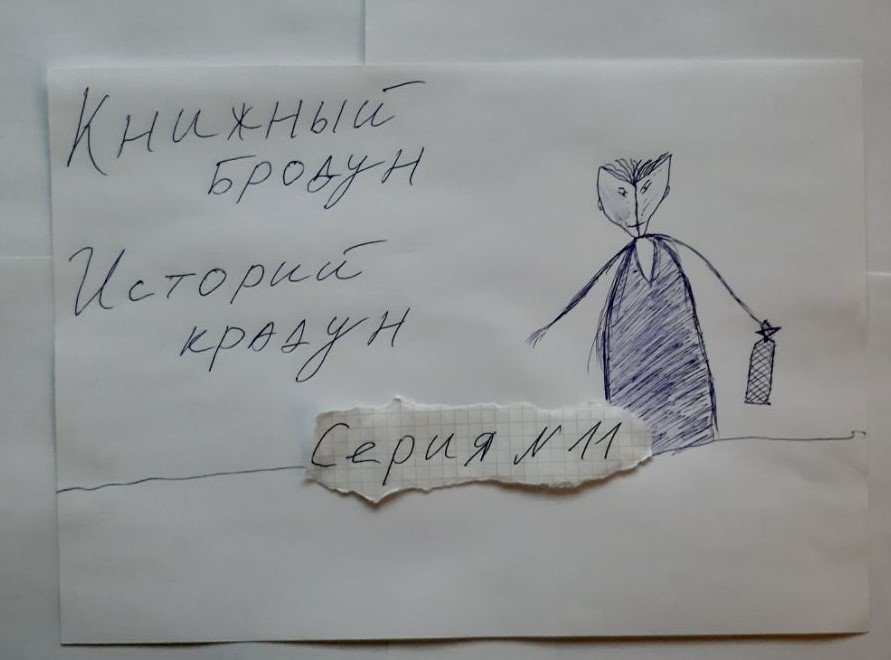 Книжный
бродун
Историй
крадун
Серия N 11